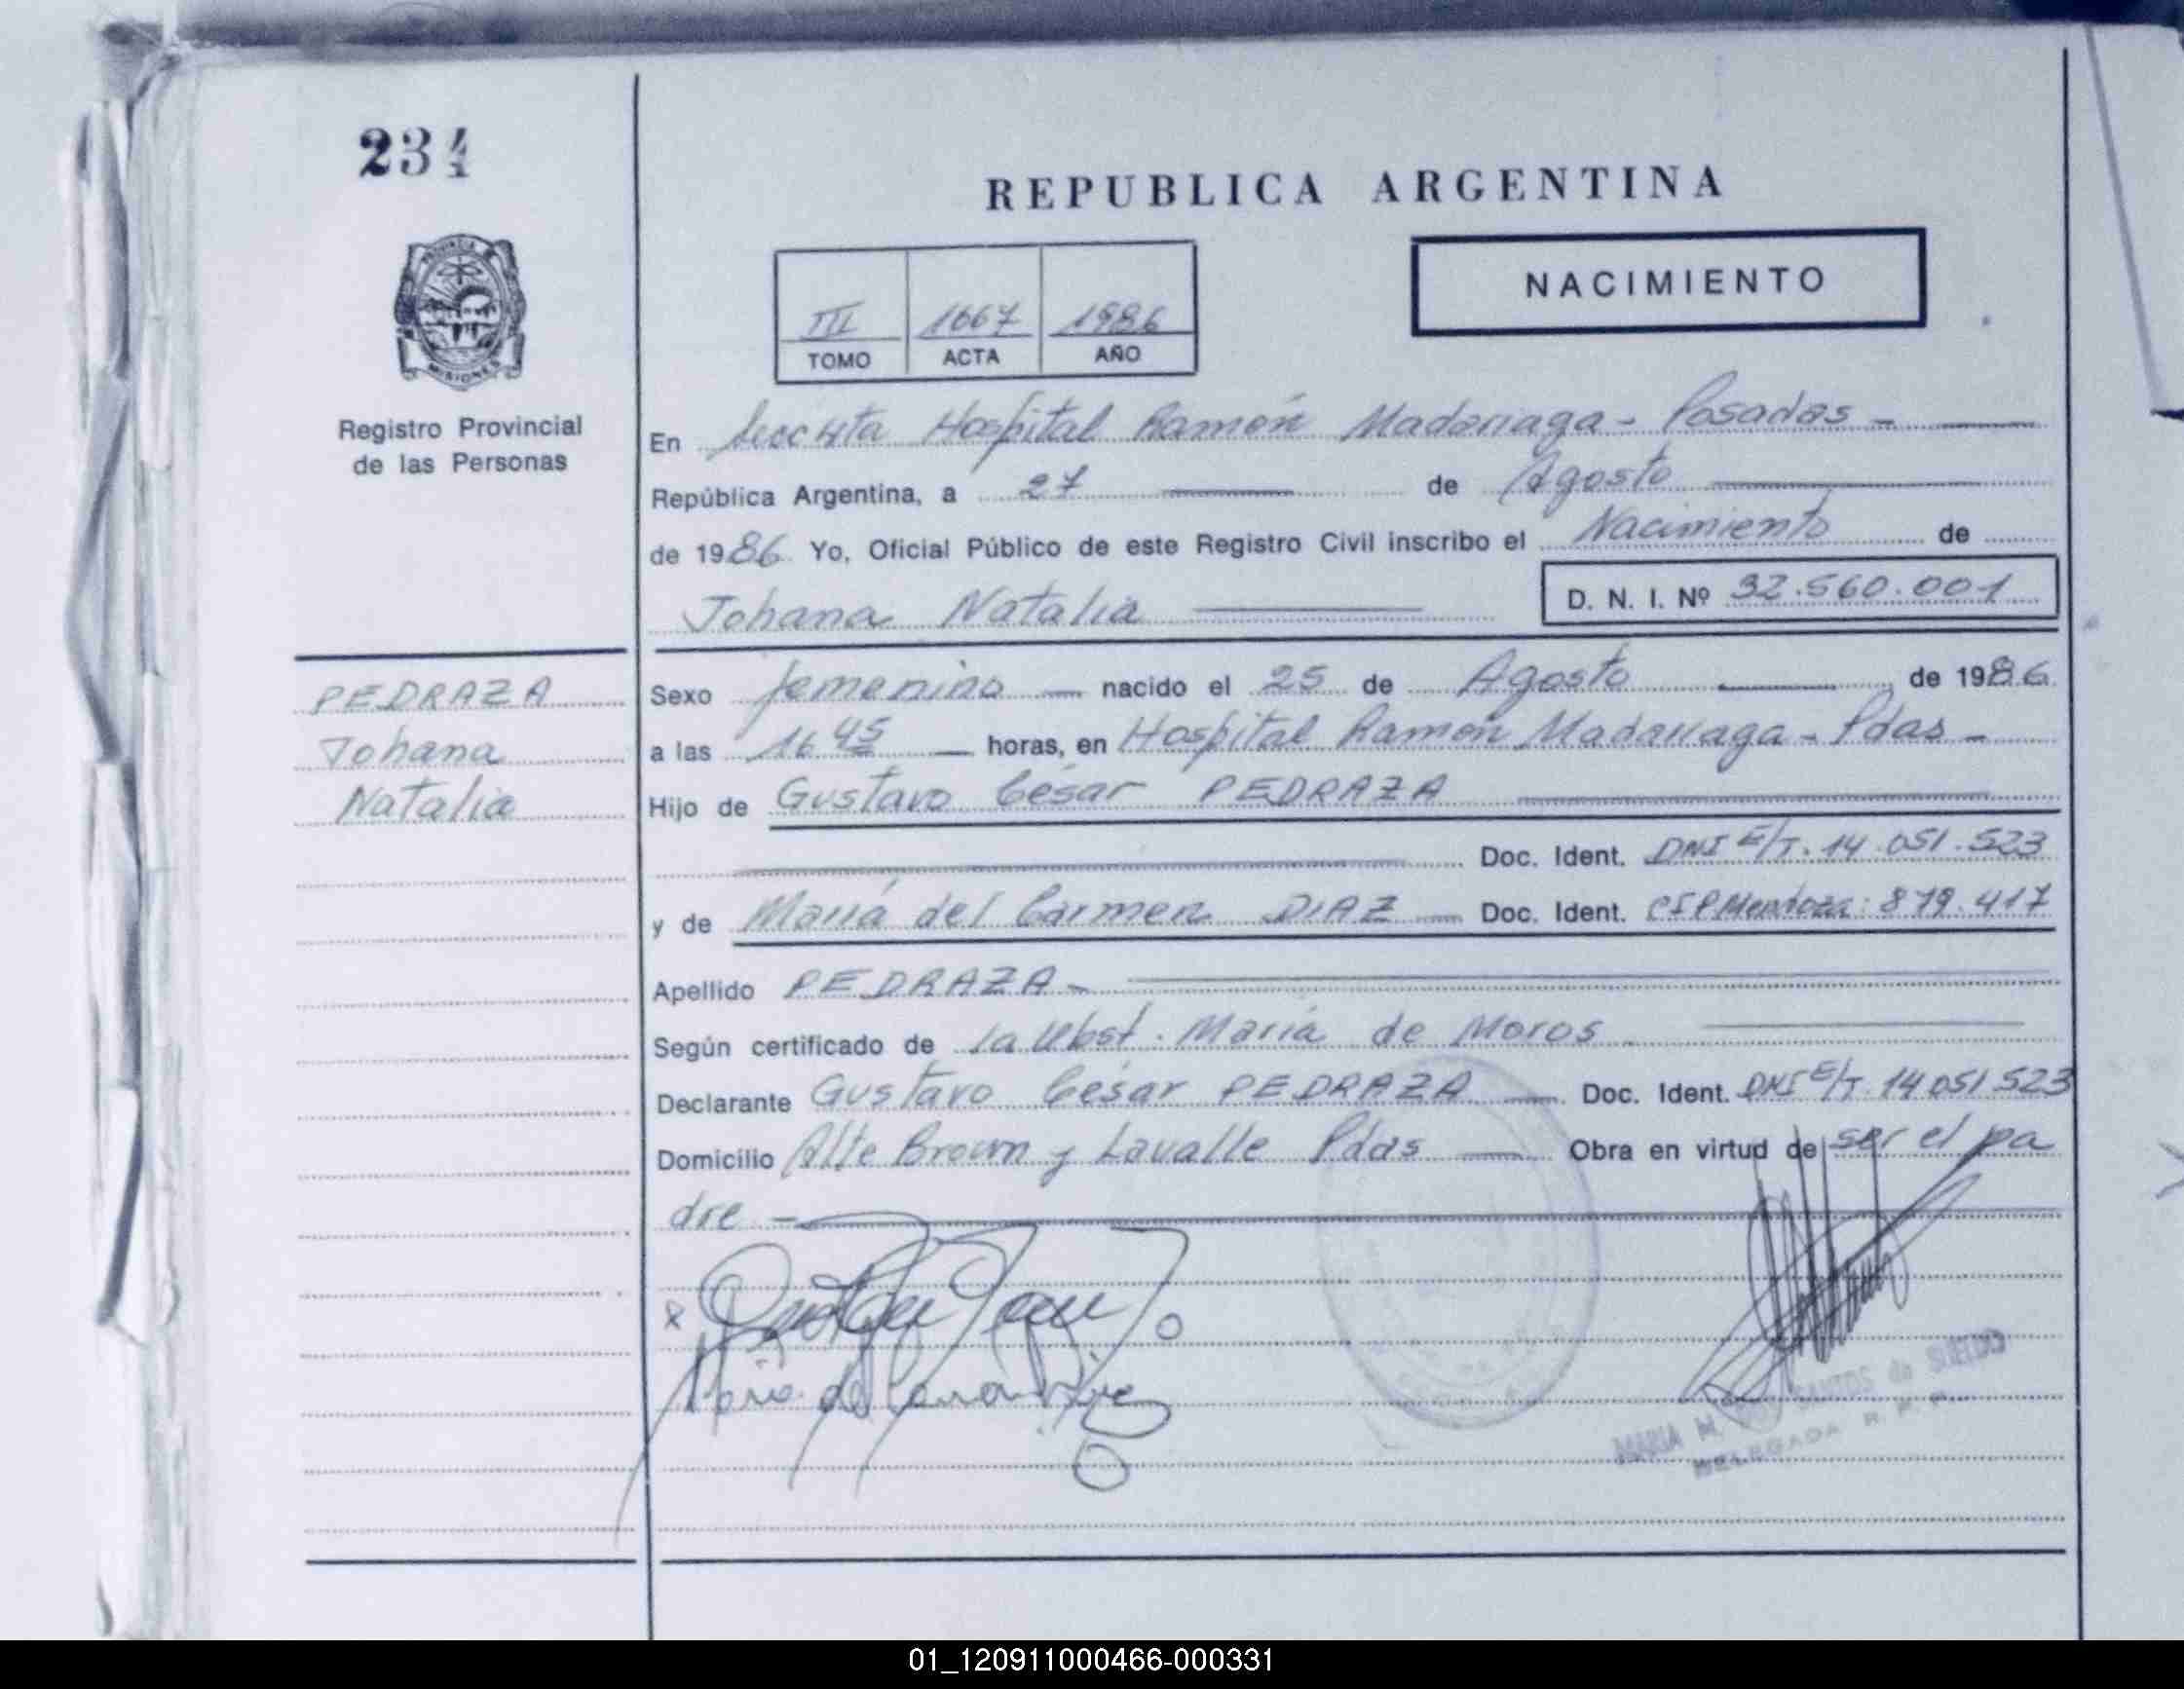 234
PROVINCIA
MISIONES
Registro Provincial
de las Personas
REPUBLICA ARGENTINA
NACIMIENTO
III 1667 1986
TOMO ACTA AÑO
En Hospital Ramón Madariaga - Posadas -
República Argentina, a 27 de Agosto
de 1986 Yo, Oficial Público de este Registro Civil inscribo el Nacimiento de
Johana Natalia D. N. I. Nº 32.560.001
PEDRAZA
Johana
Natalia
Sexo femenino nacido el 25 de Agosto de 1986
a las 16 45 horas, en Hospital Ramón Madariaga - Pdas -
Hijo de Gustavo César PEDRAZA
Doc. Ident. DNI E/T. 14.051.523
y de María del Carmen DIAZ Doc. Ident. CIP Mendoza: 879.417
Apellido PEDRAZA -
Según certificado de la Obst. María de Moros
Declarante Gustavo César PEDRAZA Doc. Ident. DNI E/T. 14 051 523
Domicilio Alte Brown y Lavalle Pdas Obra en virtud de ser el pa
dre -
MARIA M. SANTOS de SUELDO
DELEGADA R. P. P.
01_120911000466-000331